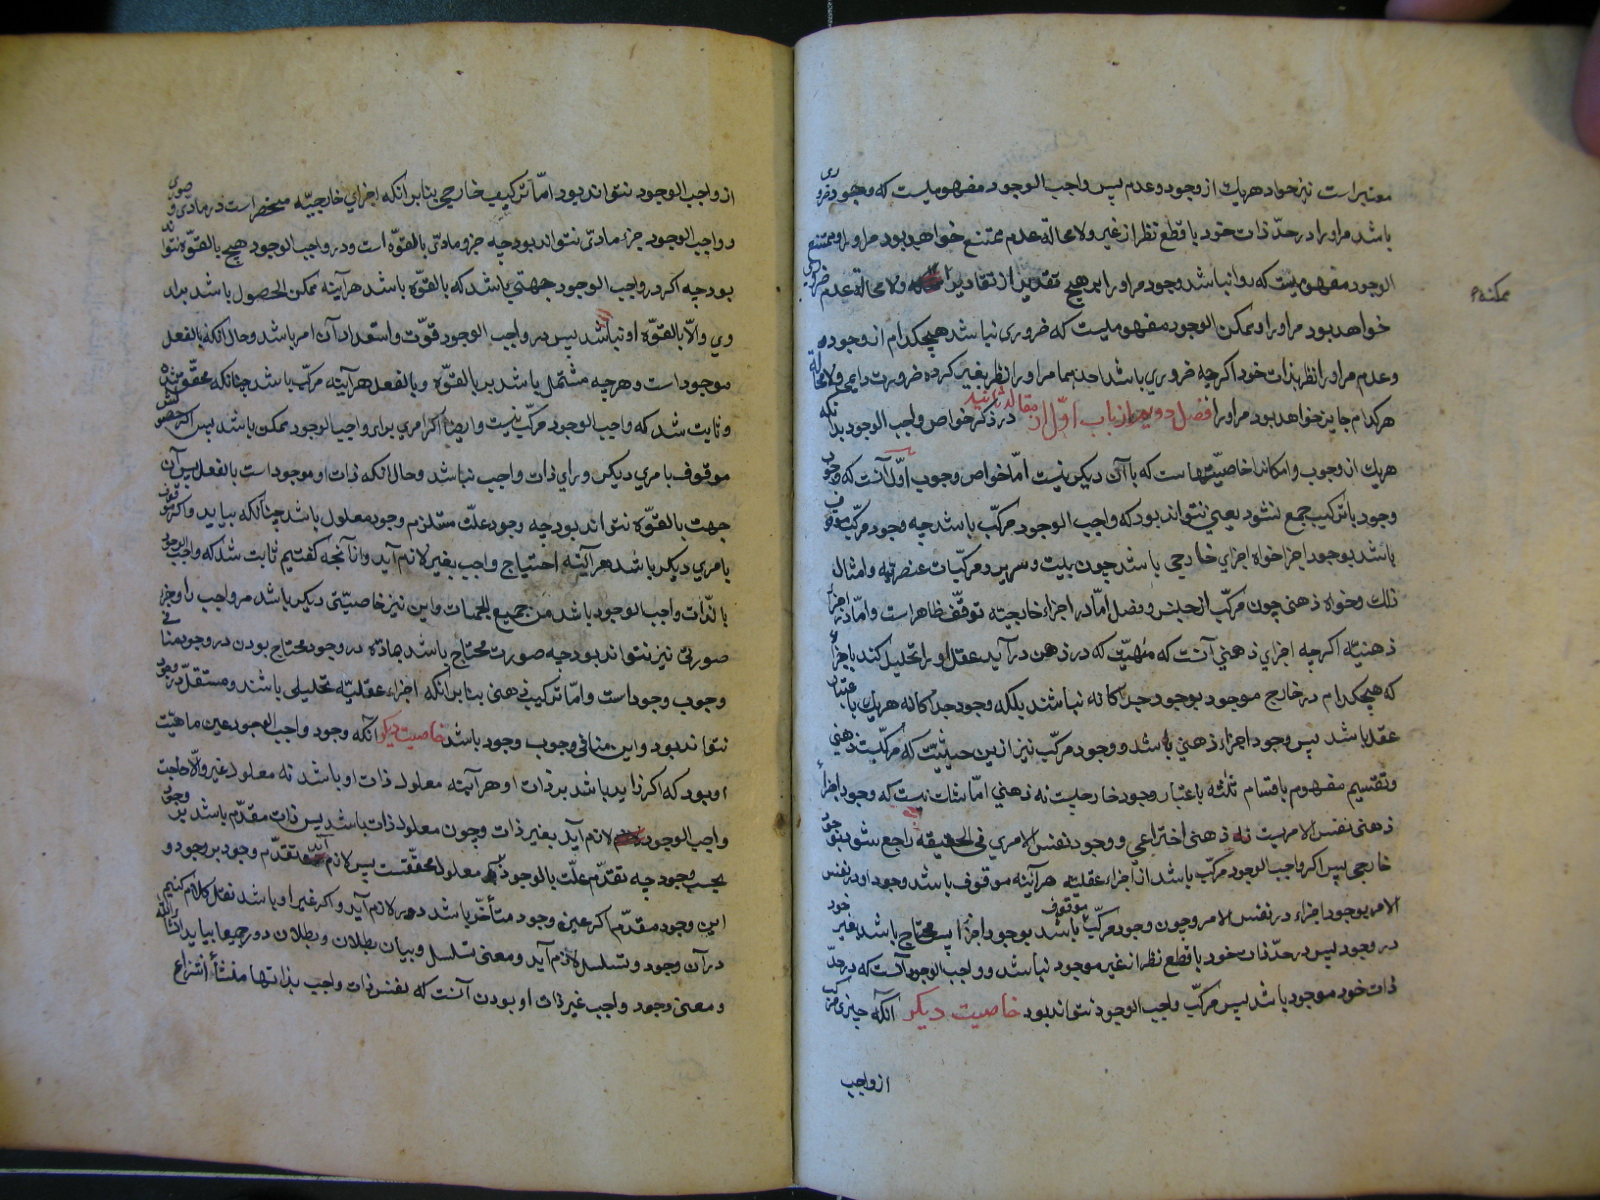 معتبر است نیز نخواد هریك از وجود و عدم پس واجب الوجود مفهومیست که وجود ضروری
باشد مر او را در حدّ ذات خود با قطع نظر از غیر ولا محالة عدم ممتنع خواهد بود مر او را و ممتنع
الوجود مفهومیست که روا نباشد وجود مر او را بر هیچ تقدیر از تقادیر ولا محالة عدم ضروری
خواهد بود مر او را و ممکن الوجود مفهومیست که ضروری نباشد هیچکدام از وجود
وعدم مر او را نظر بذات خود اکرچه ضروری باشد احدهما مر او را نظر بغیر کرده ضرورت داعی ولا محالة
هرکدام جایز خواهد بود مر او را فصل دویم از باب اوّل از مقاله ثانیه در ذکر خواص واجب الوجود بدانکه
هریك از وجوب و امکان را خاصیّتهاست که با آن دیکر نیست امّا خواص وجوب اوّل آنست که وجوب
وجود با ترکیب جمع نشود یعنی نتواند بود که واجب الوجود مرکّب باشد چه وجود مرکّب موقوف
باشد بوجود اجزا خواه اجزای خارجی باشد چون بیت و سریر و مرکّبات عنصریّه و امثال
ذلك وخواه ذهنی چون مرکّب از جنس و فصل امّا در اجزاء خارجیّه توقّف ظاهر است و امّا در اجزاء
ذهنیّه اکرچه اجزای ذهنی آنست که مٰهیّت که در ذهن درآید عقل او را تحلیل کند باجزاء
که هیچکدام در خارج موجود بوجود جداکانه نباشند بلکه وجود جداکانه هریك باعتبار
عقل باشد پس وجود اجزاء ذهنی باشد و وجود مرکّب نیز ازین حیثیّت که مرکّبست ذهنی
وتقسیم مفهوم باقسام ثلثه باعتبار وجود خارجیست نه ذهنی امّا شات نیست که وجود اجزاء
ذهنی نفس الامریست نه ذهنی اختراعی و وجود نفس الامری فی الحقیقه راجع شود بوجود
خارجی پس اکر واجب الوجود مرکّب باشد از اجزاء عقلیّه هرآینه موقوف باشد وجود او در نفس
الامر بوجود اجزاء در نفس الامر وچون وجود مرکّب موقوف باشد بوجود اجزاء پس محتاج باشد بغیر خود
در وجود پس در حدّ ذات خود با قطع نظر از غیر موجود نباشد و واجب الوجود آنست که در حدّ
ذات خود موجود باشد پس مرکّب واجب الوجود نتواند بود خاصیت دیکر آنکه چیزی مرکّب
از واجب
ممکنه
از واجب الوجود نتواند بود امّا ترکیب خارجی بنابر انکه اجزای خارجیّه منحصر است در مادی و صوری
و واجب الوجود جزء مادّی نتواند بود چه جزو مادّی بالقوّه است و در واجب الوجود هیچ بالقوّه نتواند
بود چه اکر در واجب الوجود جهتی باشد که بالقوّه باشد هرآینه ممکن الحصول باشد برای
وی والّا بالقوّه او نباشد پس در واجب الوجود قوّت و استعداد آن امر باشد وحال انکه بالفعل
موجود است وهرچه مشتمل باشد بر بالقوّه و بالفعل هرآینه مرکّب باشد چنانکه محقّق شده
و ثابت شد که واجب الوجود مرکّب نیست و ایضا اکر امری برای واجب الوجود ممکن باشد پس اکر حصولش
موقوف بامری دیکر ورای ذات واجب نباشد وحال انکه ذات او موجود است بالفعل پس آن
جهت بالقوّه نتواند بود چه وجود علّت مستلزم وجود معلول باشد چنانکه بیاید واکر موقوف
بامری دیکر باشد هرآینه احتیاج واجب بغیر لازم آید و از آنچه کفتیم ثابت شد که واجب الوجود
بالذّات واجب الوجود باشد من جمیع الجهات و این نیز خاصیّتی دیکر باشد مر واجب را و جزء
صورتی نیز نتواند بود چه صورت محتاج باشد بمادّه در وجود ومحتاج بودن در وجود منافی
وجوب وجود است وامّا ترکیب ذهنی بنابر انکه اجزاء عقلیّه تحلیلی باشند و مستقلّ در وجود
نتواند بود و این منافی وجوب وجود باشد خاصیت دیکر آنکه وجود واجب الوجود عین ماهیّت
او بود که اکر زاید باشد بر ذات او هرآینه معلول ذات او باشد نه معلول غیر والّا حاجت
واجب الوجود لازم آید بغیر ذات و چون معلول ذات باشد پس ذات مقدّم باشد بر وجود
بحسب وجود چه تقدّم علّت بالوجود بر معلول محقّقست پس لازم آید تقدّم وجود بر وجود و
این وجود مقدّم اکر عین وجود متأخّر باشد دور لازم آید و اکر غیر او باشد نقل کلام کنیم
در آن وجود و تسلسل لازم آید و معنی تسلسل و بیان بطلان و بطلان دور جمیعا بیاید انشاءالله
و معنی وجود واجب غیر ذات او بودن آنست که نفس ذات واجب بذاتها منشأ انتزاع